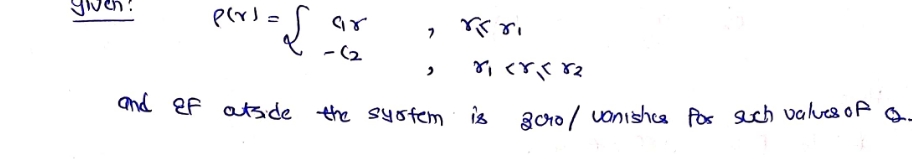 given:
ρ(r) = { ar , r ≤ r1
-C2 , r1 < r ≤ r2
and EF outside the system is zero/ vanishes for such values of Q.